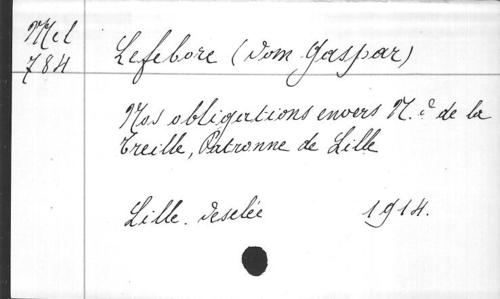 Mel
784
Lefebvre (Dom Gaspar)
Nos obligations envers N. D. de la
Treille, Patronne de Lille
Lille. Desclée 1914.